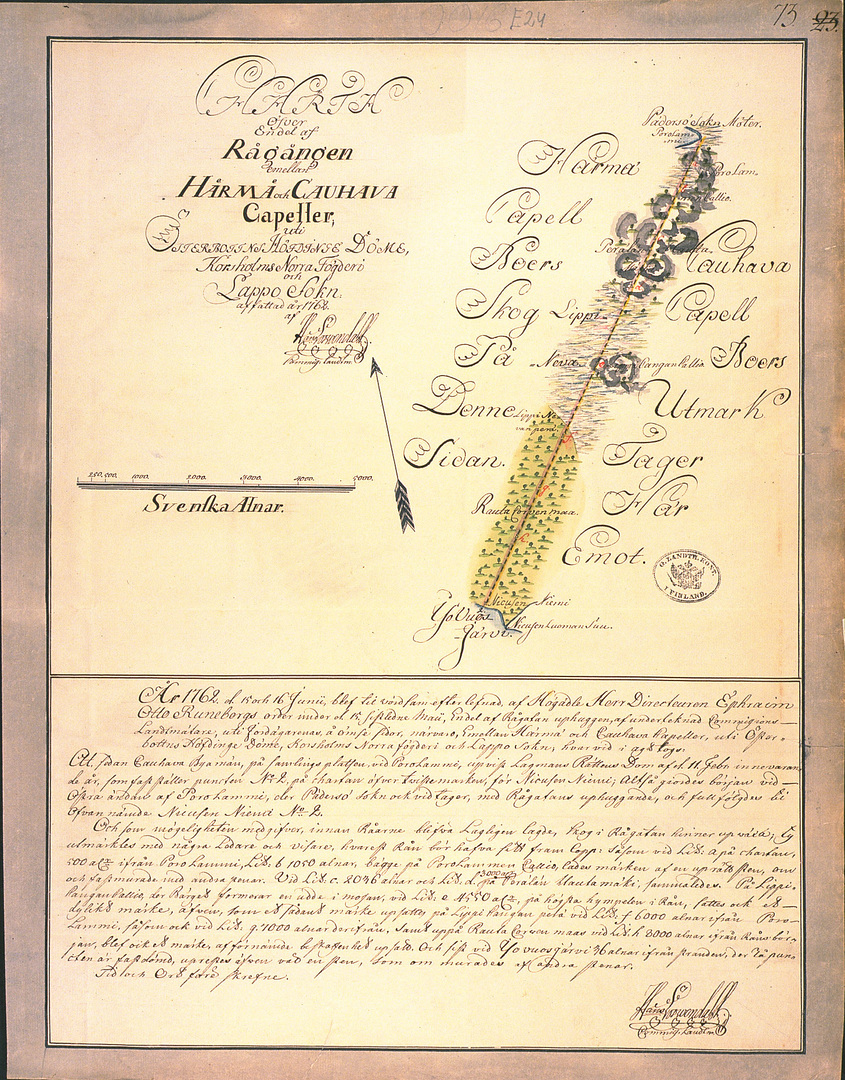 E24
73. 23.
CHARTA
Öfver
Endel af
Rågången
emellan
HÄRMÄ och CAUHAVA
Capeller,
uti
ÖSTERBOTNS HÖFDINGE DÖME,
Korsholms Norra Fögderi
och
Lappo Sokn.
affattad år 1762.
af
Commiss: Landtm:
250. 500. 1000. 2000. 3000. 4000. 5000.
Svenska Alnar.
Pädersö Sokn Möter.
Porolam-
Härmä
Poro Lam-
Callio.
Capell
Boers
Cauhava
Skog
Lippi-
Capell
På
Neva
Pangan Callio
Boers
Denne
Lippi Ne-
van perä
Utmark
Sidan.
Tager
Rauta Corven maa.
Här
Emot.
O. LANDTM. KONT.
I FINLAND.
Niemi
Nieusen Luoman Suu.
Järvi.
År 1762. d. 15 och 16 Junii, blef til vördsam efterlefnad, af Högädle Herr Directeuren Ephraim
Otto Runebergs order under d. 15. sistledne Maii, Endel af Rågatan uphuggen, af underteknad Commissions
Landtmätare, uti Jordägarenas, å ömse sidor, närvaro, Emellan Härmä och Cauhava Capeller, uti Öster-
bottns Höfdinge Döme, Korsholms Norra fögderi och Lappo Sokn, hvar vid i agt togs.
Sedan Cauhava Bya män, på samlings platsen, vid Porolammi, upvist Lagmans Rättens Dom af d. 11. Febr. innevaran-
de år, som fastställer puncten No. 2, på chartan öfver tvistemarken, för Nieusen Niemi; Altså giordes början vid
Östra ändan af Porolammi, der Pädersö Sokn ock vid tager, med Rågatans uphuggande, och fullfölgdes til
ofvan nämde Nieusen Niemi No. 2.
Och som möjeligheten medgifver, innan Råarne blifva Lagligen lagde, skog i Rågatan hinner up växa; Ty
utmärktes med några Lodare och visare, hvarest Rån bör hafva sitt fram lopp: såsom vid Litt: a på chartan,
500 alr ifrån Poro Lammi, Litt. b 1050 alnar, bägge på Porolammen Callio, lades märken af en uprätt sten, om
och fastmurade med andra stenar. Vid Litt. c. 2036 alnar och Litt. d. 3000 alr på Perälän Hauta mäki, sammaledes. På Lippi-
Pangan Callio, der Bärget formerar en udde i måsan, vid Litt. e 4550 alr. på högsta kympelen i Rån, settes ock et
dylikt märke, äfven, som et sådant märke upsattes på Lippi Pangan perä vid Litt. f 6000 alnar ifrån Poro-
Lammi, såsom ock vid Litt. g. 7000 alnar derifrån, samt uppå Rauta Corven maas vid Litt. h 8000 alnar ifrån Råns bör-
jan, blef ock et märke, af förnämde beskaffenhet upsatt. Och sist vid Yovuosjärvi 36 alnar ifrån stranden, der Rå punc-
ten är fastdömd, uprestes äfven väl en sten, som om murades af andra stenar.
Tid och Ort förr skrefne.
Commiss: Landtm: